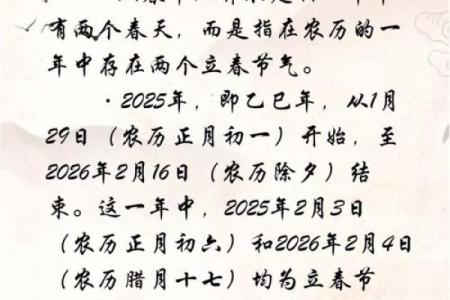 有两个春天，而是指在农历的一
年中存在两个立春节气。
·2025年，即乙巳年，从1月
29日（农历正月初一）开始，至
2026年2月16日（农历除夕）结
束。这一年中，2025年2月3日
（农历正月初六）和2026年2月4日
（农历腊月十七）均为立春节